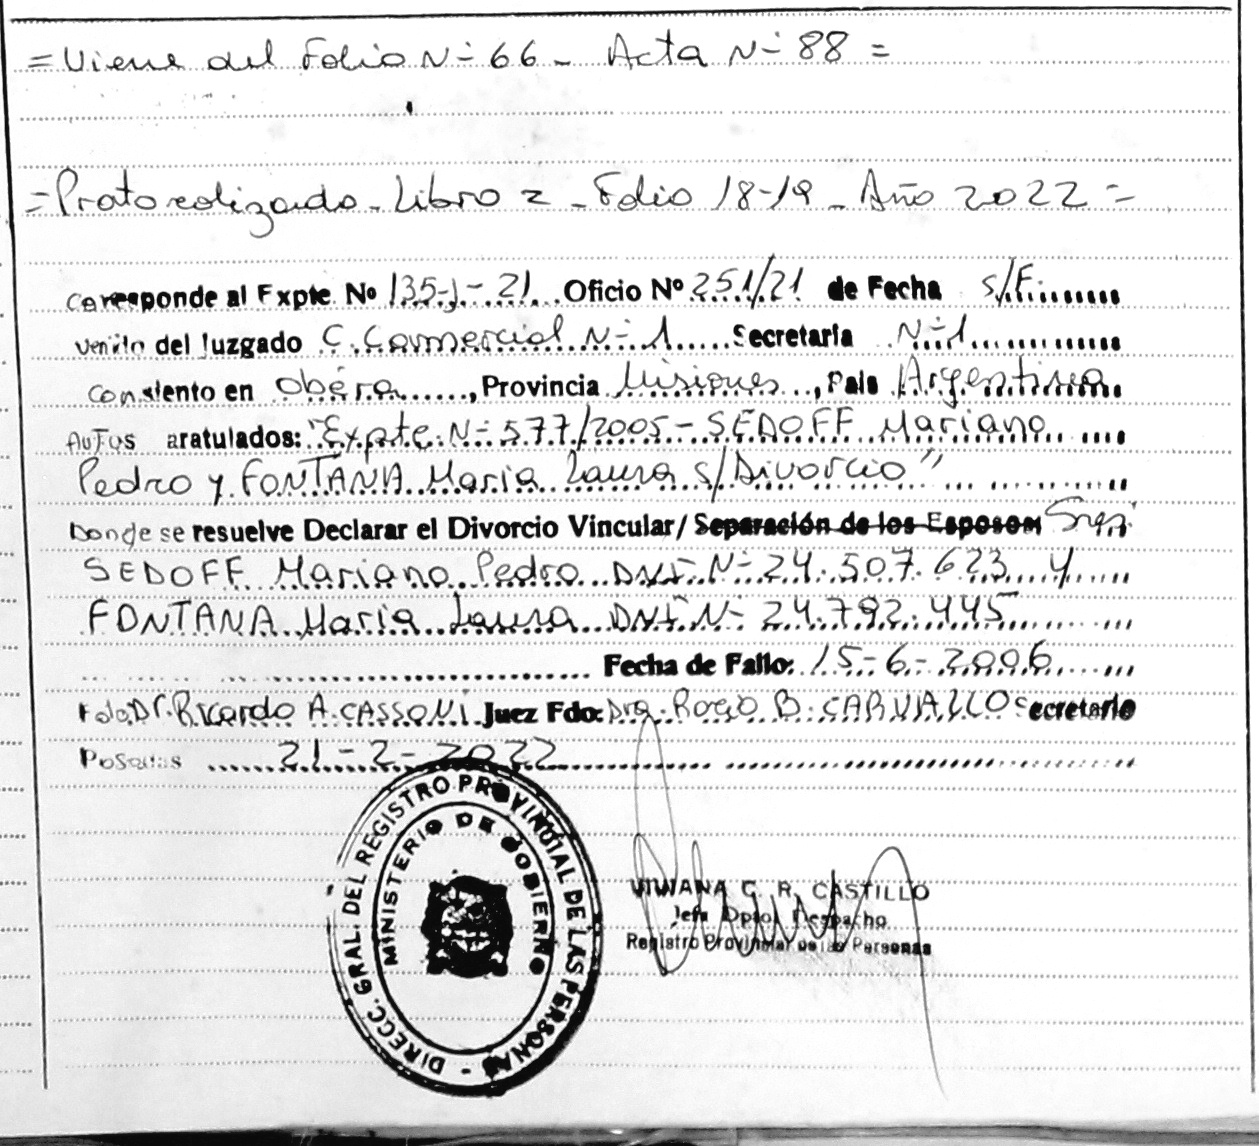 = Viene del Folio Nº 66 - Acta Nº 88 =
= Protocolizado - Libro 2 - Folio 18-19 - Año 2022 =
Corresponde al Expte. Nº 135-J-21 Oficio Nº 251/21 de Fecha S/F.
venido del Juzgado C. Comercial Nº 1 Secretaria Nº 1
con asiento en Oberá, Provincia Misiones, Pais Argentina
AUTOS caratulados: "Expte. Nº 577/2005 - SEDOFF Mariano
Pedro y FONTANA Maria Laura s/Divorcio"
Donde se resuelve Declarar el Divorcio Vincular/ Separación de los Esposos Sres.
SEDOFF Mariano Pedro DNI Nº 24.507.623 y
FONTANA Maria Laura DNI Nº 24.792.445
Fecha de Fallo: 15-6-2006
Fdo. Dr. Ricardo A. CASSONI Juez Fdo: Dra. B. CARVALLO Secretario
Posadas 21-2-2022
DIRECC. GRAL. DEL REGISTRO PROVINCIAL DE LAS PERSONAS -
MINISTERIO DE GOBIERNO
VIVIANA C. R. CASTILLO
Jefa Dpto. Despacho
Registro Provincial de las Personas